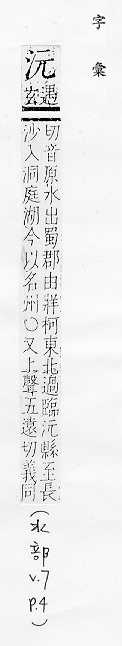 字彙
沅
遇玄
切音原水出蜀郡由牂柯東北過臨沅縣至長
沙入洞庭湖今以名州○又上聲五遠切義同
(水部 v.7 p.4)